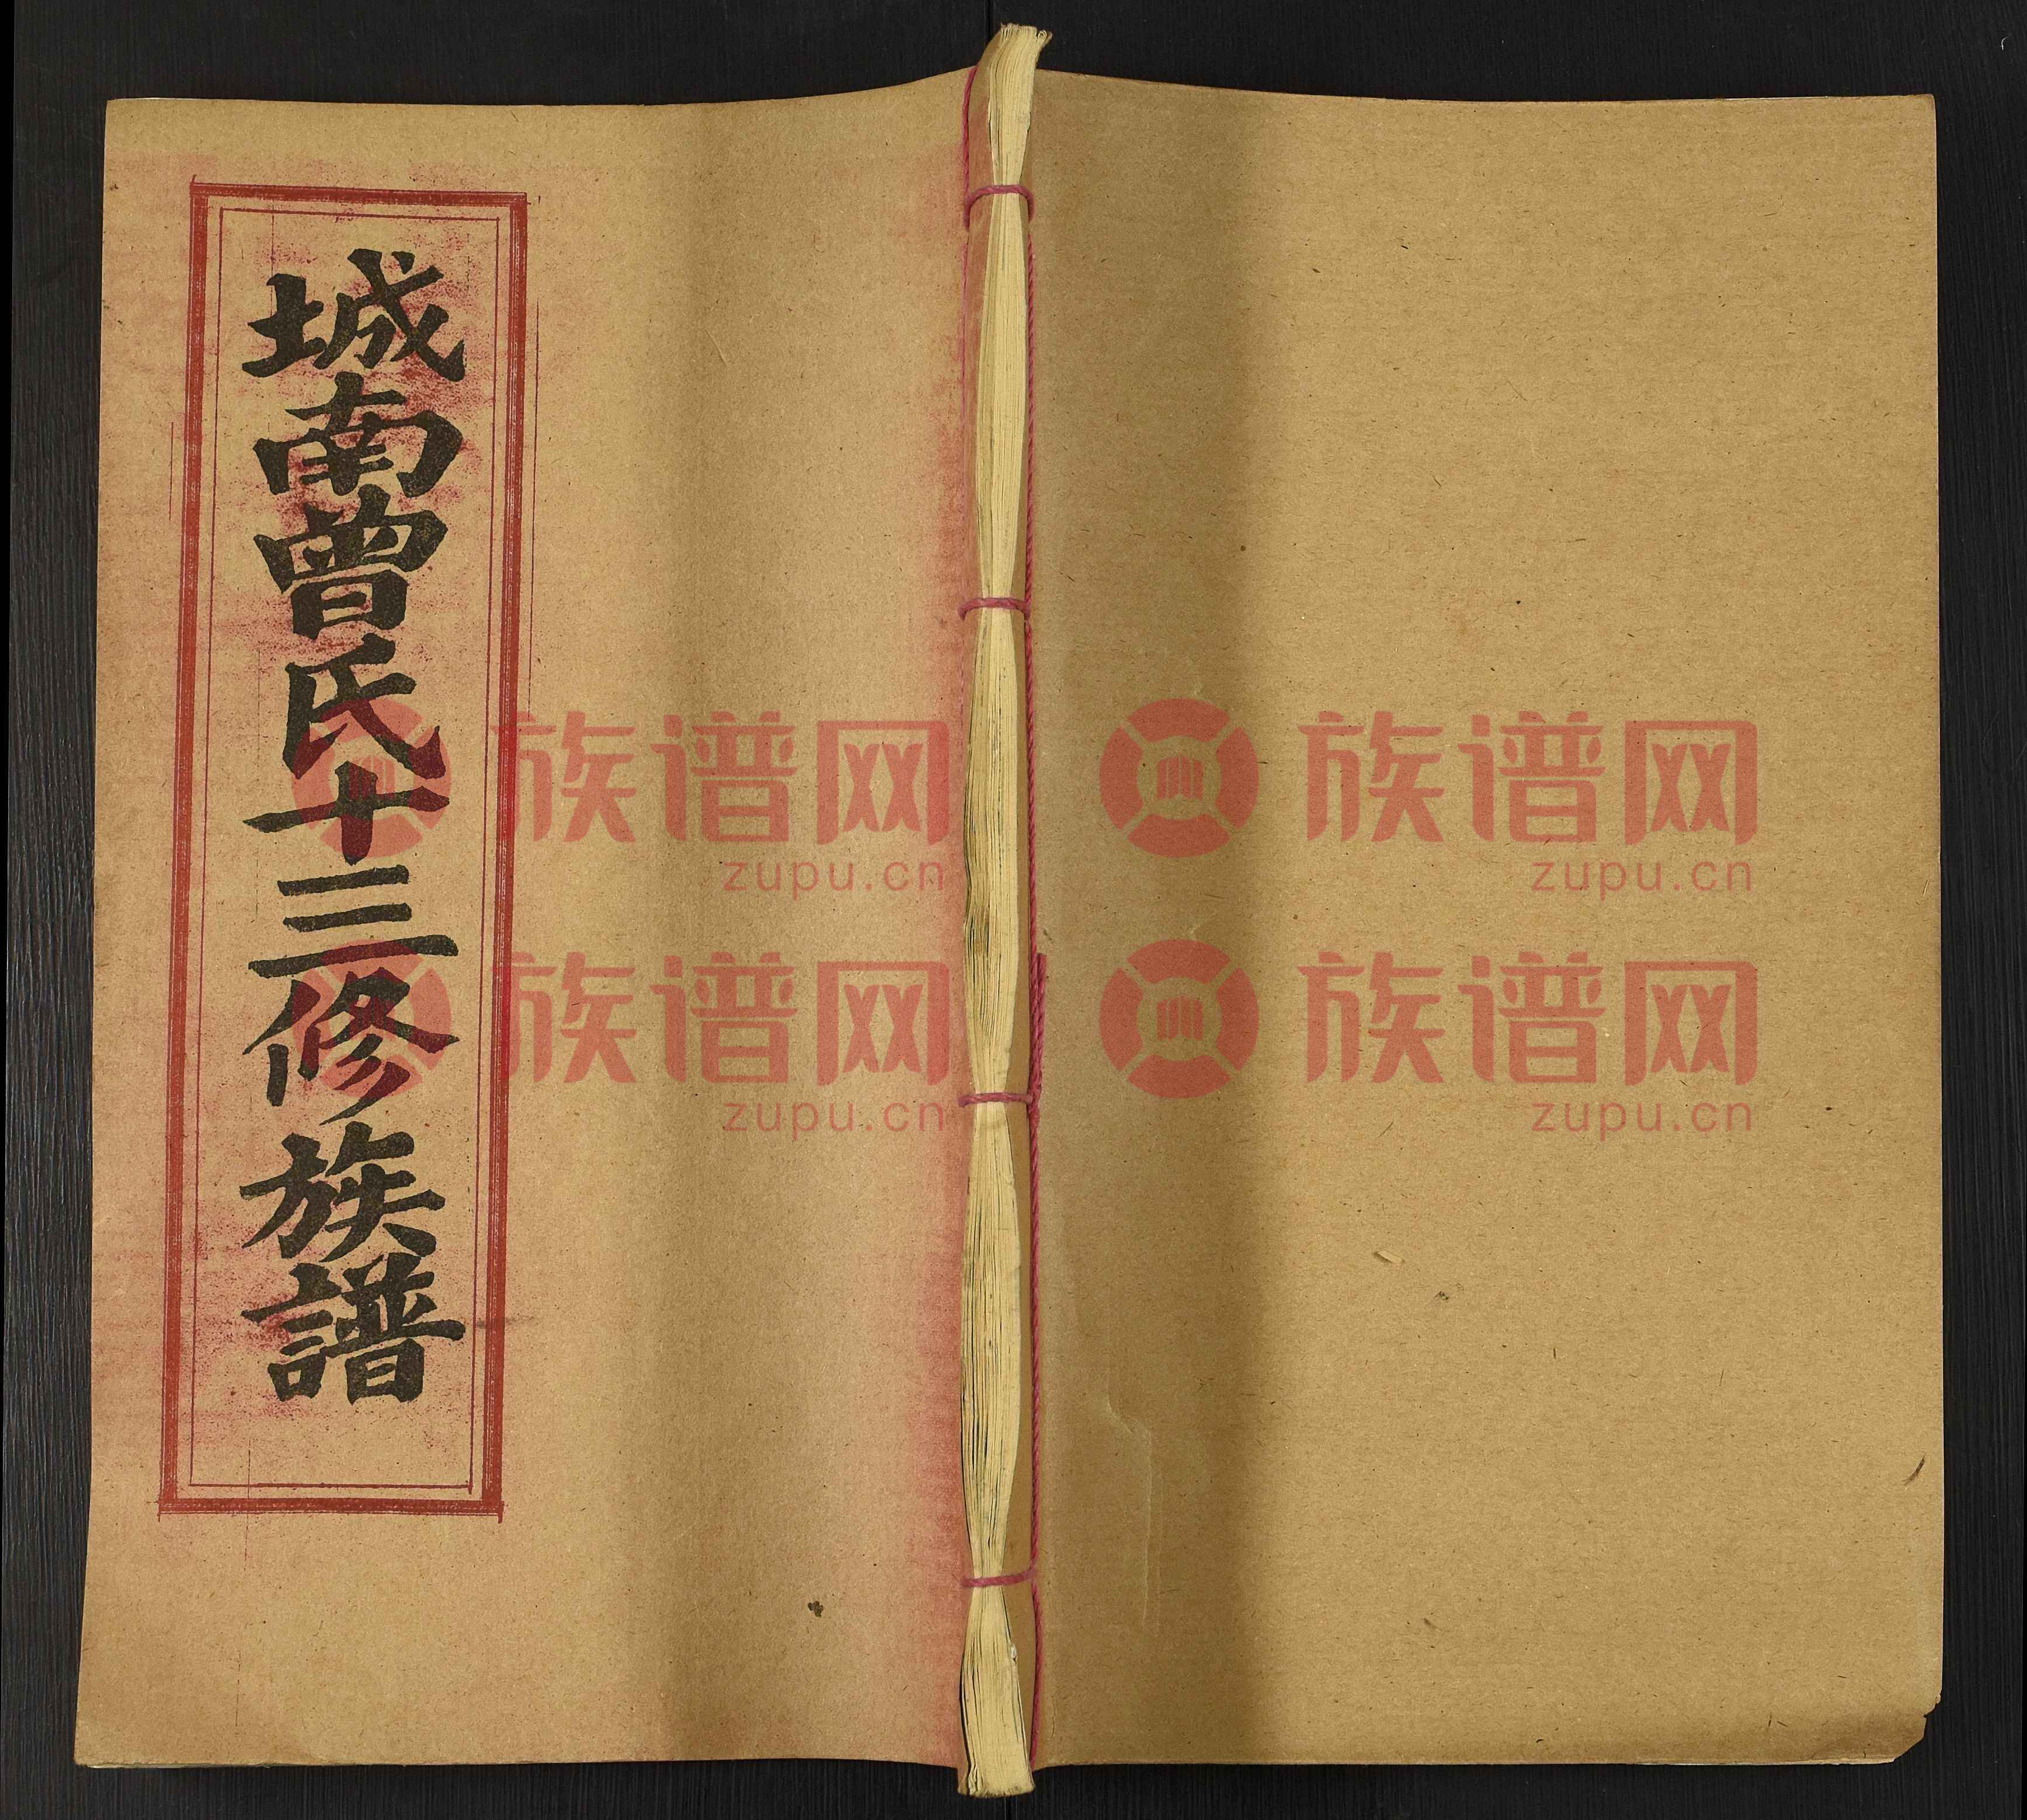 城南曾氏十三修族譜
族谱网 族谱网
zupu.cn zupu.cn
族谱网 族谱网
zupu.cn zupu.cn